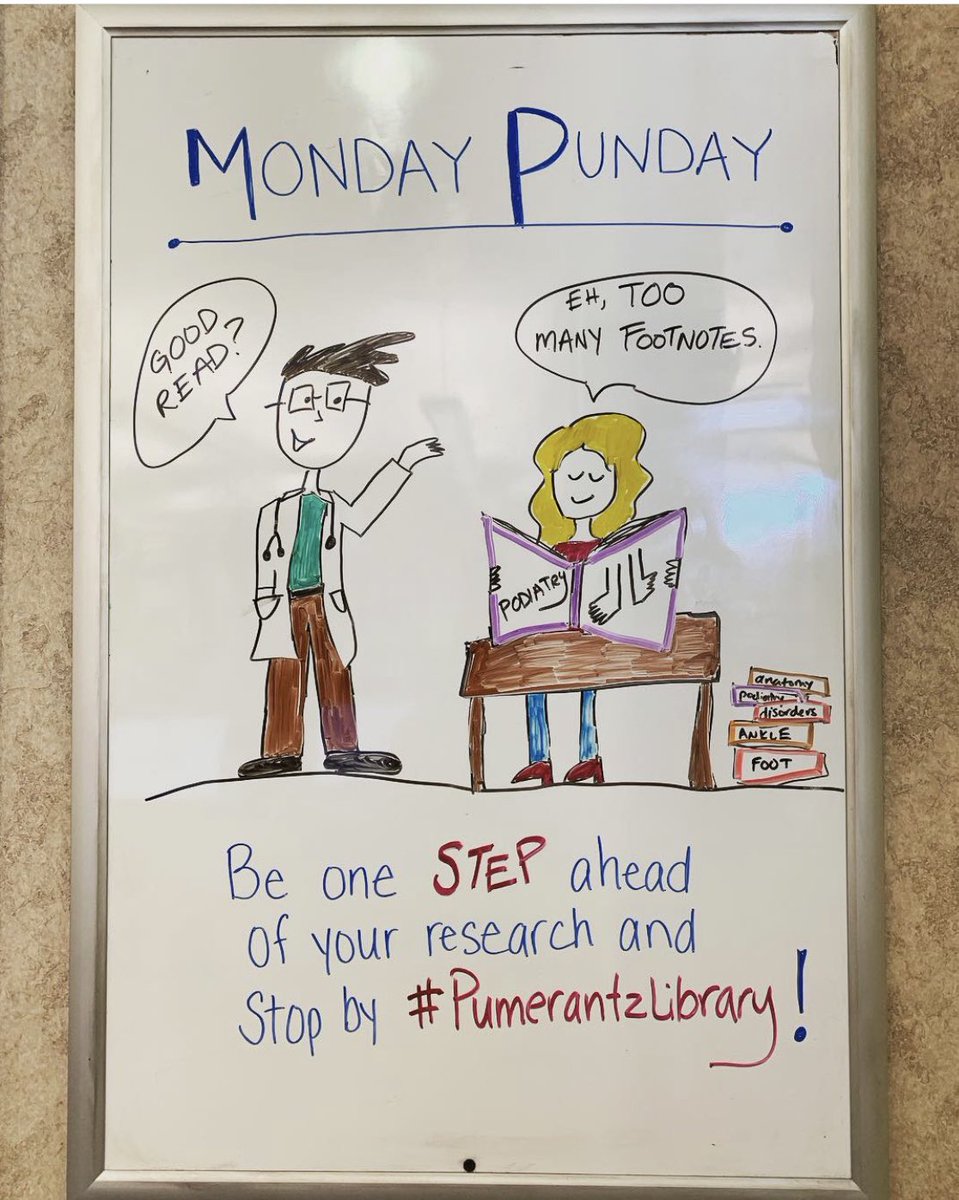 MONDAY PUNDAY
GOOD
READ?
EH, TOO
MANY FOOTNOTES.
PODIATRY
anatomy
podiatry
disorders
ANKLE
FOOT
Be one STEP ahead
of your research and
Stop by #PumerantzLibrary!